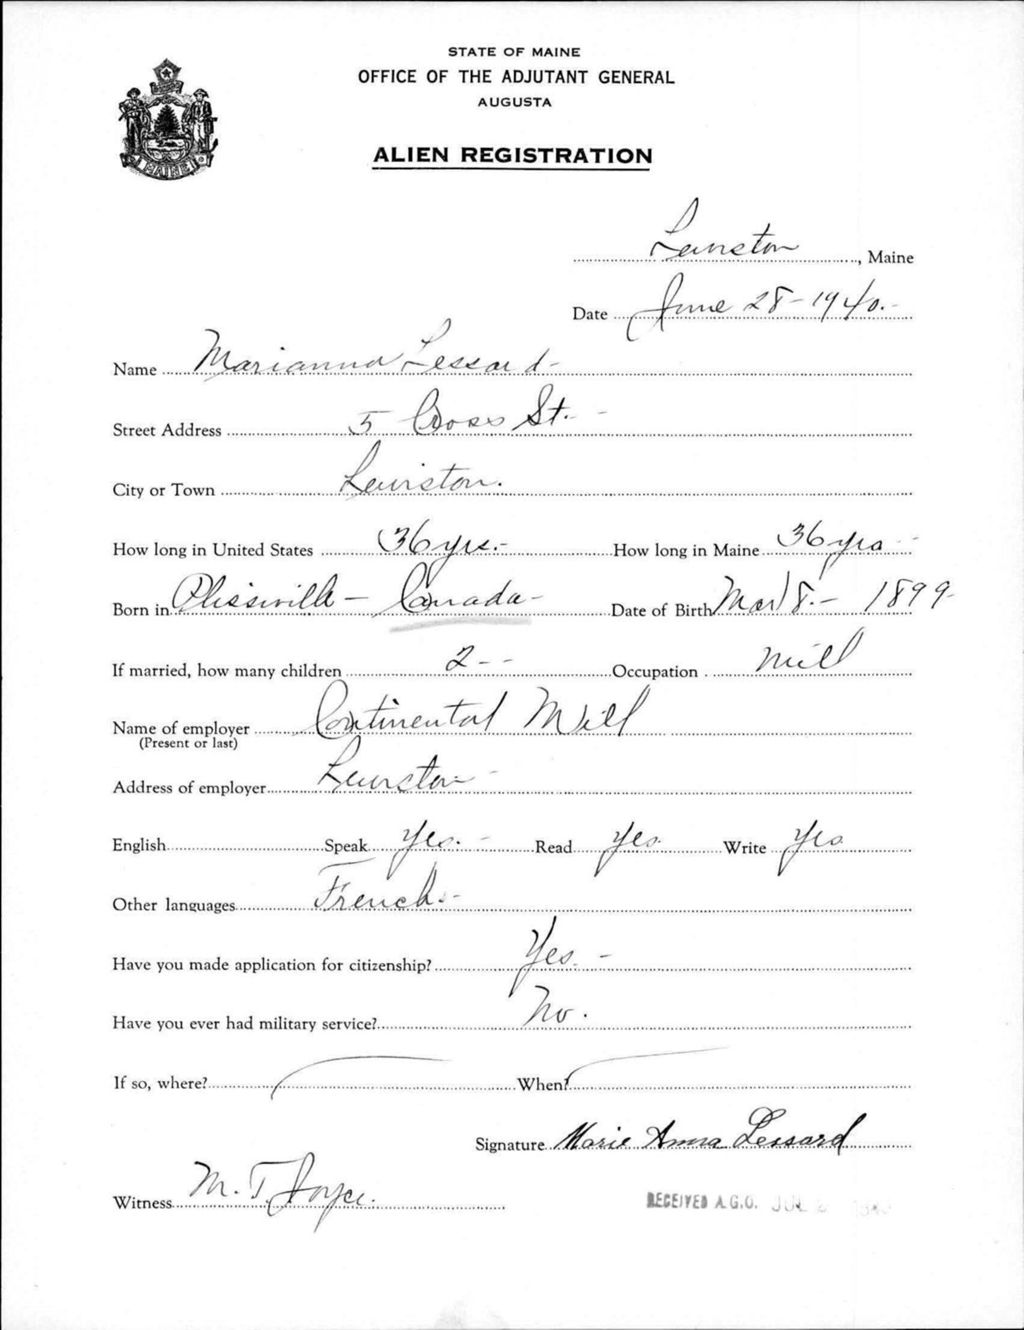 STATE OF MAINE
OFFICE OF THE ADJUTANT GENERAL
AUGUSTA
MAINE
ALIEN REGISTRATION
Lewiston, Maine
Date June 28-1940.-
Name Marianna Lessard-
Street Address 5 Cross St.-
City or Town Lewiston.
How long in United States 36 yrs.- How long in Maine 36 yrs
Born in Plissville - Canada- Date of Birth Mar 8.- 1899-
If married, how many children 2-- Occupation mill
Name of employer Continental Mill
(Present or last)
Address of employer Lewiston-
English Speak Yes.- Read Yes. Write Yes
Other languages French.-
Have you made application for citizenship? Yes.-
Have you ever had military service? No.
If so, where? When?
Signature Marie Anna Lessard
Witness M. T. Joyce.
RECEIVED A.G.O. JUL